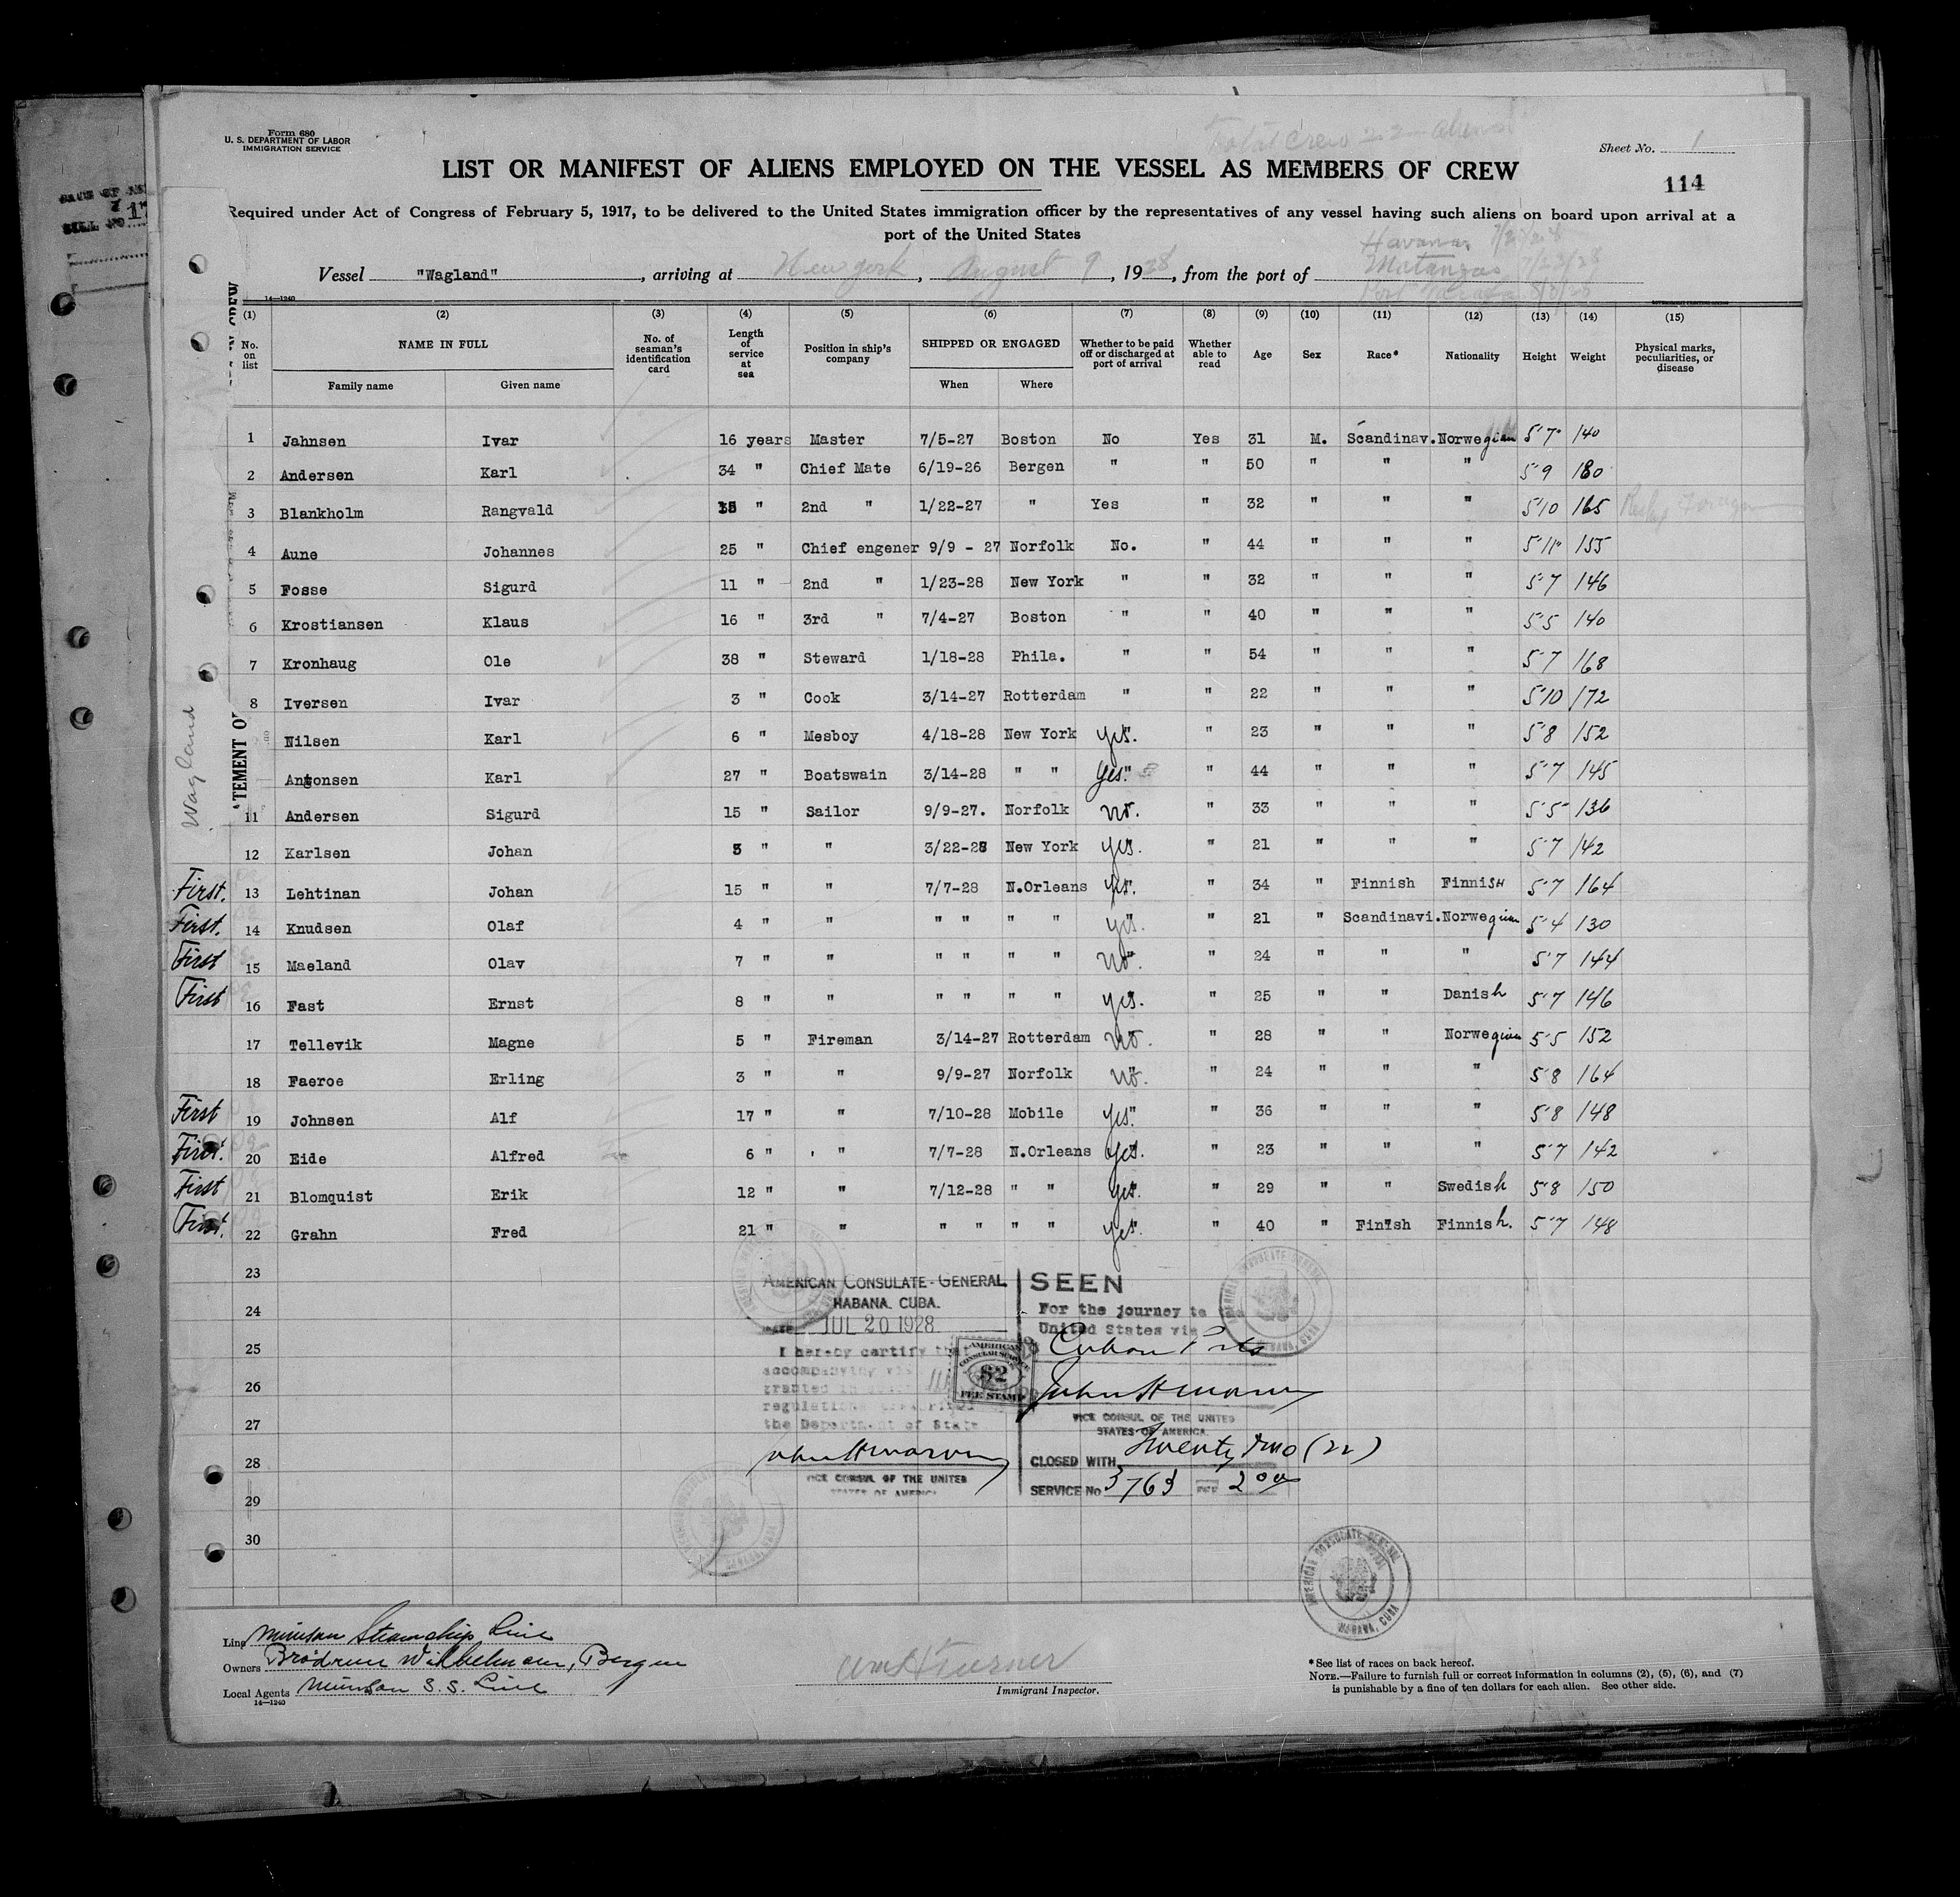 Form 680
U. S. DEPARTMENT OF LABOR
IMMIGRATION SERVICE
Total Crew 22 aliens
Sheet No. 1
LIST OR MANIFEST OF ALIENS EMPLOYED ON THE VESSEL AS MEMBERS OF CREW
114
Required under Act of Congress of February 5, 1917, to be delivered to the United States immigration officer by the representatives of any vessel having such aliens on board upon arrival at a
port of the United States
Havana
Vessel "Wagland", arriving at New York, August 9, 1928, from the port of Matanzas 7/23/28
14—1240
(1) (2) (3) (4) (5) (6) (7) (8) (9) (10) (11) (12) (13) (14) (15)
No. on list NAME IN FULL Family name Given name No. of seaman's identification card Length of service at sea Position in ship's company SHIPPED OR ENGAGED When Where Whether to be paid off or discharged at port of arrival Whether able to read Age Sex Race* Nationality Height Weight Physical marks, peculiarities, or disease
1 Jahnsen Ivar 16 years Master 7/5-27 Boston No Yes 31 M. Scandinav. Norwegian 5'7" 140
2 Andersen Karl 34 " Chief Mate 6/19-26 Bergen " " 50 " " " 5'9 180
3 Blankholm Rangvald " 2nd " 1/22-27 " Yes " 32 " " " 5'10 165
4 Aune Johannes 25 " Chief engener 9/9 - 27 Norfolk No. " 44 " " " 5'11" 155
5 Fosse Sigurd 11 " 2nd " 1/23-28 New York " " 32 " " " 5'7 146
6 Krostiansen Klaus 16 " 3rd " 7/4-27 Boston " " 40 " " " 5'5 140
7 Kronhaug Ole 38 " Steward 1/18-28 Phila. " " 54 " " " 5'7 168
8 Iversen Ivar 3 " Cook 3/14-27 Rotterdam " " 22 " " " 5'10 172
Nilsen Karl 6 " Mesboy 4/18-28 New York yes. " 23 " " " 5'8 152
Antonsen Karl 27 " Boatswain 3/14-28 " " yes. " 44 " " " 5'7 145
11 Andersen Sigurd 15 " Sailor 9/9-27. Norfolk No. " 33 " " " 5'5 136
12 Karlsen Johan 3 " " 3/22-28 New York yes. " 21 " " " 5'7 142
First. 13 Lehtinan Johan 15 " " 7/7-28 N.Orleans yes. " 34 " Finnish Finnish 5'7 164
First. 14 Knudsen Olaf 4 " " " " " " yes. " 21 " Scandinavi. Norwegian 5'4 130
First 15 Maeland Olav 7 " " " " " " No. " 24 " " " 5'7 144
First 16 Fast Ernst 8 " " " " " " yes. " 25 " " Danish 5'7 146
17 Tellevik Magne 5 " Fireman 3/14-27 Rotterdam No. " 28 " " Norwegian 5'5 152
18 Faeroe Erling 3 " " 9/9-27 Norfolk No. " 24 " " " 5'8 164
First 19 Johnsen Alf 17 " " 7/10-28 Mobile yes. " 36 " " " 5'8 148
First. 20 Eide Alfred 6 " ' " 7/7-28 N.Orleans yes. " 23 " " " 5'7 142
First 21 Blomquist Erik 12 " " 7/12-28 " " yes. " 29 " " Swedish 5'8 150
First. 22 Grahn Fred 21 " " " " " " yes. " 40 " Finish Finnish. 5'7 148
23
24
25
26
27
28
29
30
Wagland
AMERICAN CONSULATE-GENERAL
HABANA. CUBA.
DATE JUL 20 1928
I hereby certify that
accompanying
granted in
regulations prescribed
the Department of State
VICE CONSUL OF THE UNITED
STATES OF AMERICA
AMERICAN
CONSULAR SERVICE
$2
FEE STAMP
SEEN
For the journey to the
United States via
Cuban Ports
VICE CONSUL OF THE UNITED
STATES OF AMERICA.
CLOSED WITH Twenty two (22)
SERVICE No 3763 FEE 2.00
AMERICAN CONSULATE GENERAL
HABANA, CUBA
Line Munson Steamship Line
Owners Brödrene Wilhelmsen, Bergen
Local Agents Munson S.S. Line
14—1240
Wm H Turner
Immigrant Inspector.
*See list of races on back hereof.
NOTE.—Failure to furnish full or correct information in columns (2), (5), (6), and (7)
is punishable by a fine of ten dollars for each alien. See other side.